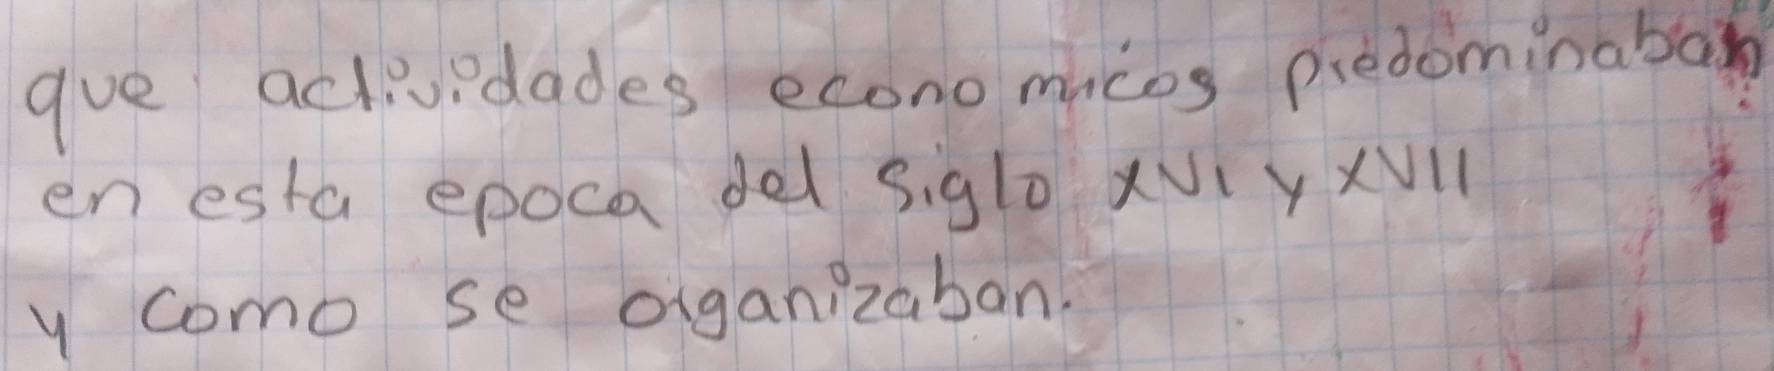 que actividades economicos predominaban
en esta epoca del siglo XVI y XVII
y como se organizaban.